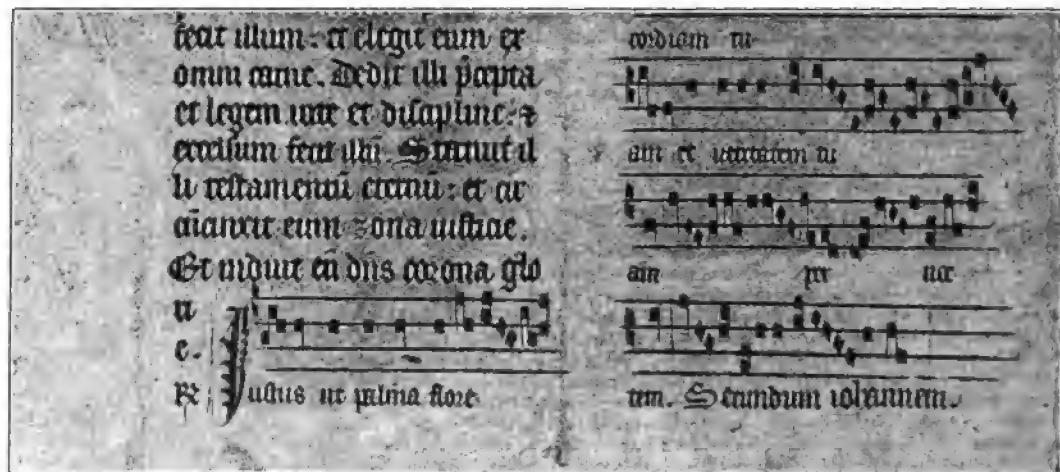 fecit illum: et elegit eum ex
omni carne. Dedit illi p̄cepta
et legem uite et discipline: ⁊
excelsum fecit illū. Statuit il
li testamentū eternū: et cir
cūcinxit eum zona iusticie.
Et induit eū dn̄s corona glo
ri
e.
℟ Iustus ut palma flore
cordiam tu-
am et ueritatem tu
am per noc
tem. Secundum iohannem.